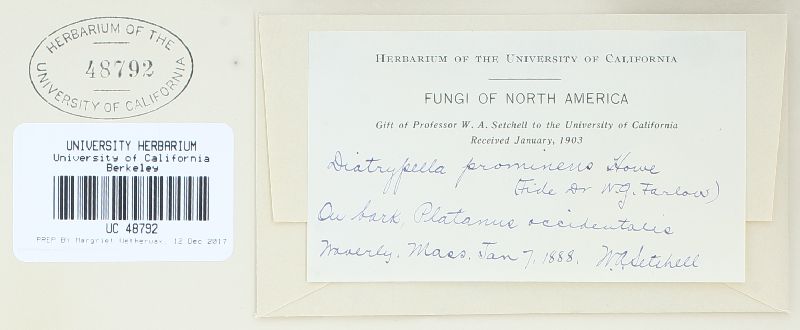 HERBARIUM OF THE
48792
UNIVERSITY OF CALIFORNIA
UNIVERSITY HERBARIUM
University of California
Berkeley
UC 48792
PREP BY Margriet Wetherwax 12 Dec 2017
HERBARIUM OF THE UNIVERSITY OF CALIFORNIA
FUNGI OF NORTH AMERICA
Gift of Professor W. A. Setchell to the University of California
Received January, 1903
Diatrypella prominens Howe
(Fide Dr W.G. Farlow)
On bark, Platanus occidentalis
Waverly, Mass. Jan 7, 1888. W.A. Setchell